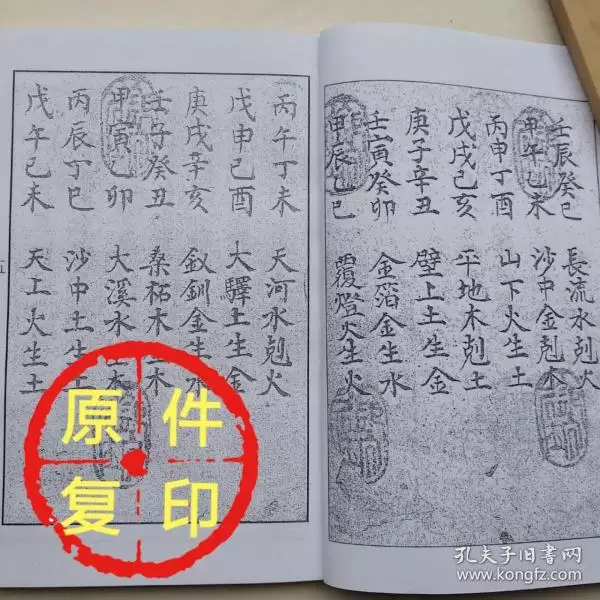 壬辰癸巳 長流水剋火
甲午乙未 沙中金剋木
丙申丁酉 山下火生土
戊戌己亥 平地木剋土
庚子辛丑 壁上土生金
壬寅癸卯 金箔金生水
甲辰乙巳 覆燈火生火
丙午丁未 天河水剋火
戊申己酉 大驛土生金
庚戌辛亥 釵釧金生水
壬子癸丑 桑柘木生木
甲寅乙卯 大溪水生木
丙辰丁巳 沙中土生土
戊午己未 天工火生土
五
原件
复印
孔夫子旧书网
www.kongfz.com